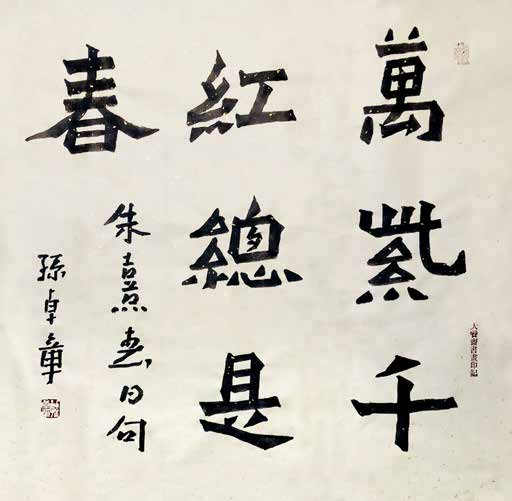 萬紫千
紅總是
春
朱熹春日句
孫卓章
大雙齋書畫印記